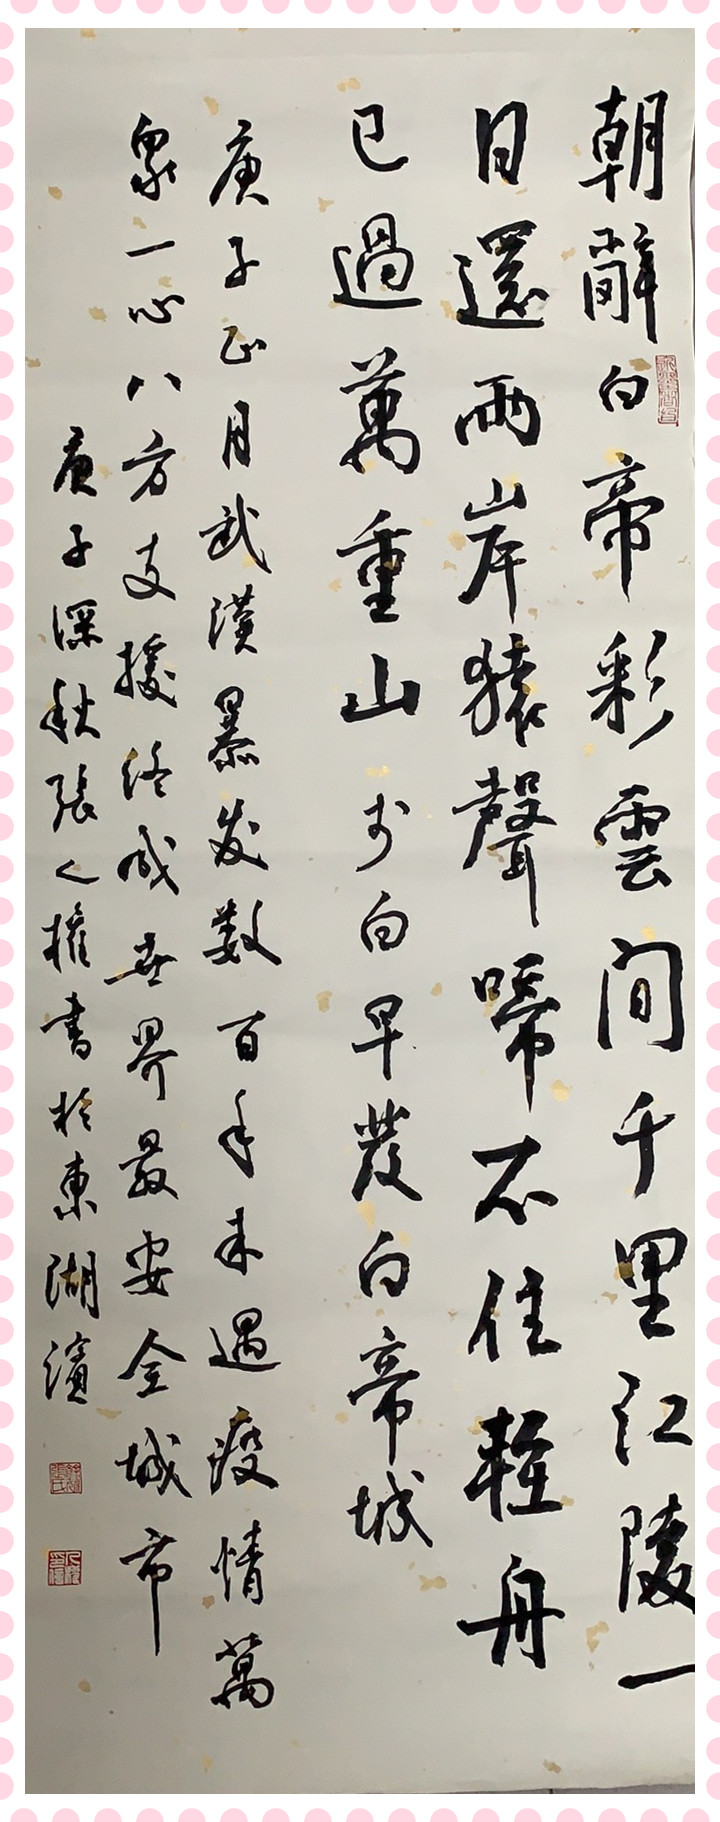 朝辭白帝彩雲间千里江陵一
日還兩岸猿聲啼不住輕舟
已過萬重山 李白早發白帝城
庚子正月武漢暴发数百年未遇疫情萬
衆一心八方支援终成世界最安全城市
庚子深秋張之權書於東湖濱